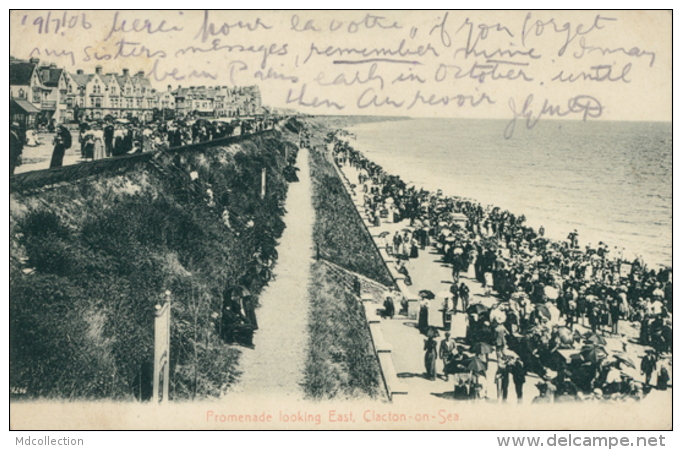 19/7/06 Merci pour la votre, if you forget
my sisters messages, remember mine I may
be in Paris early in October. until
then Au revoir
Promenade looking East, Clacton-on-Sea
Mdcollection
www.delcampe.net